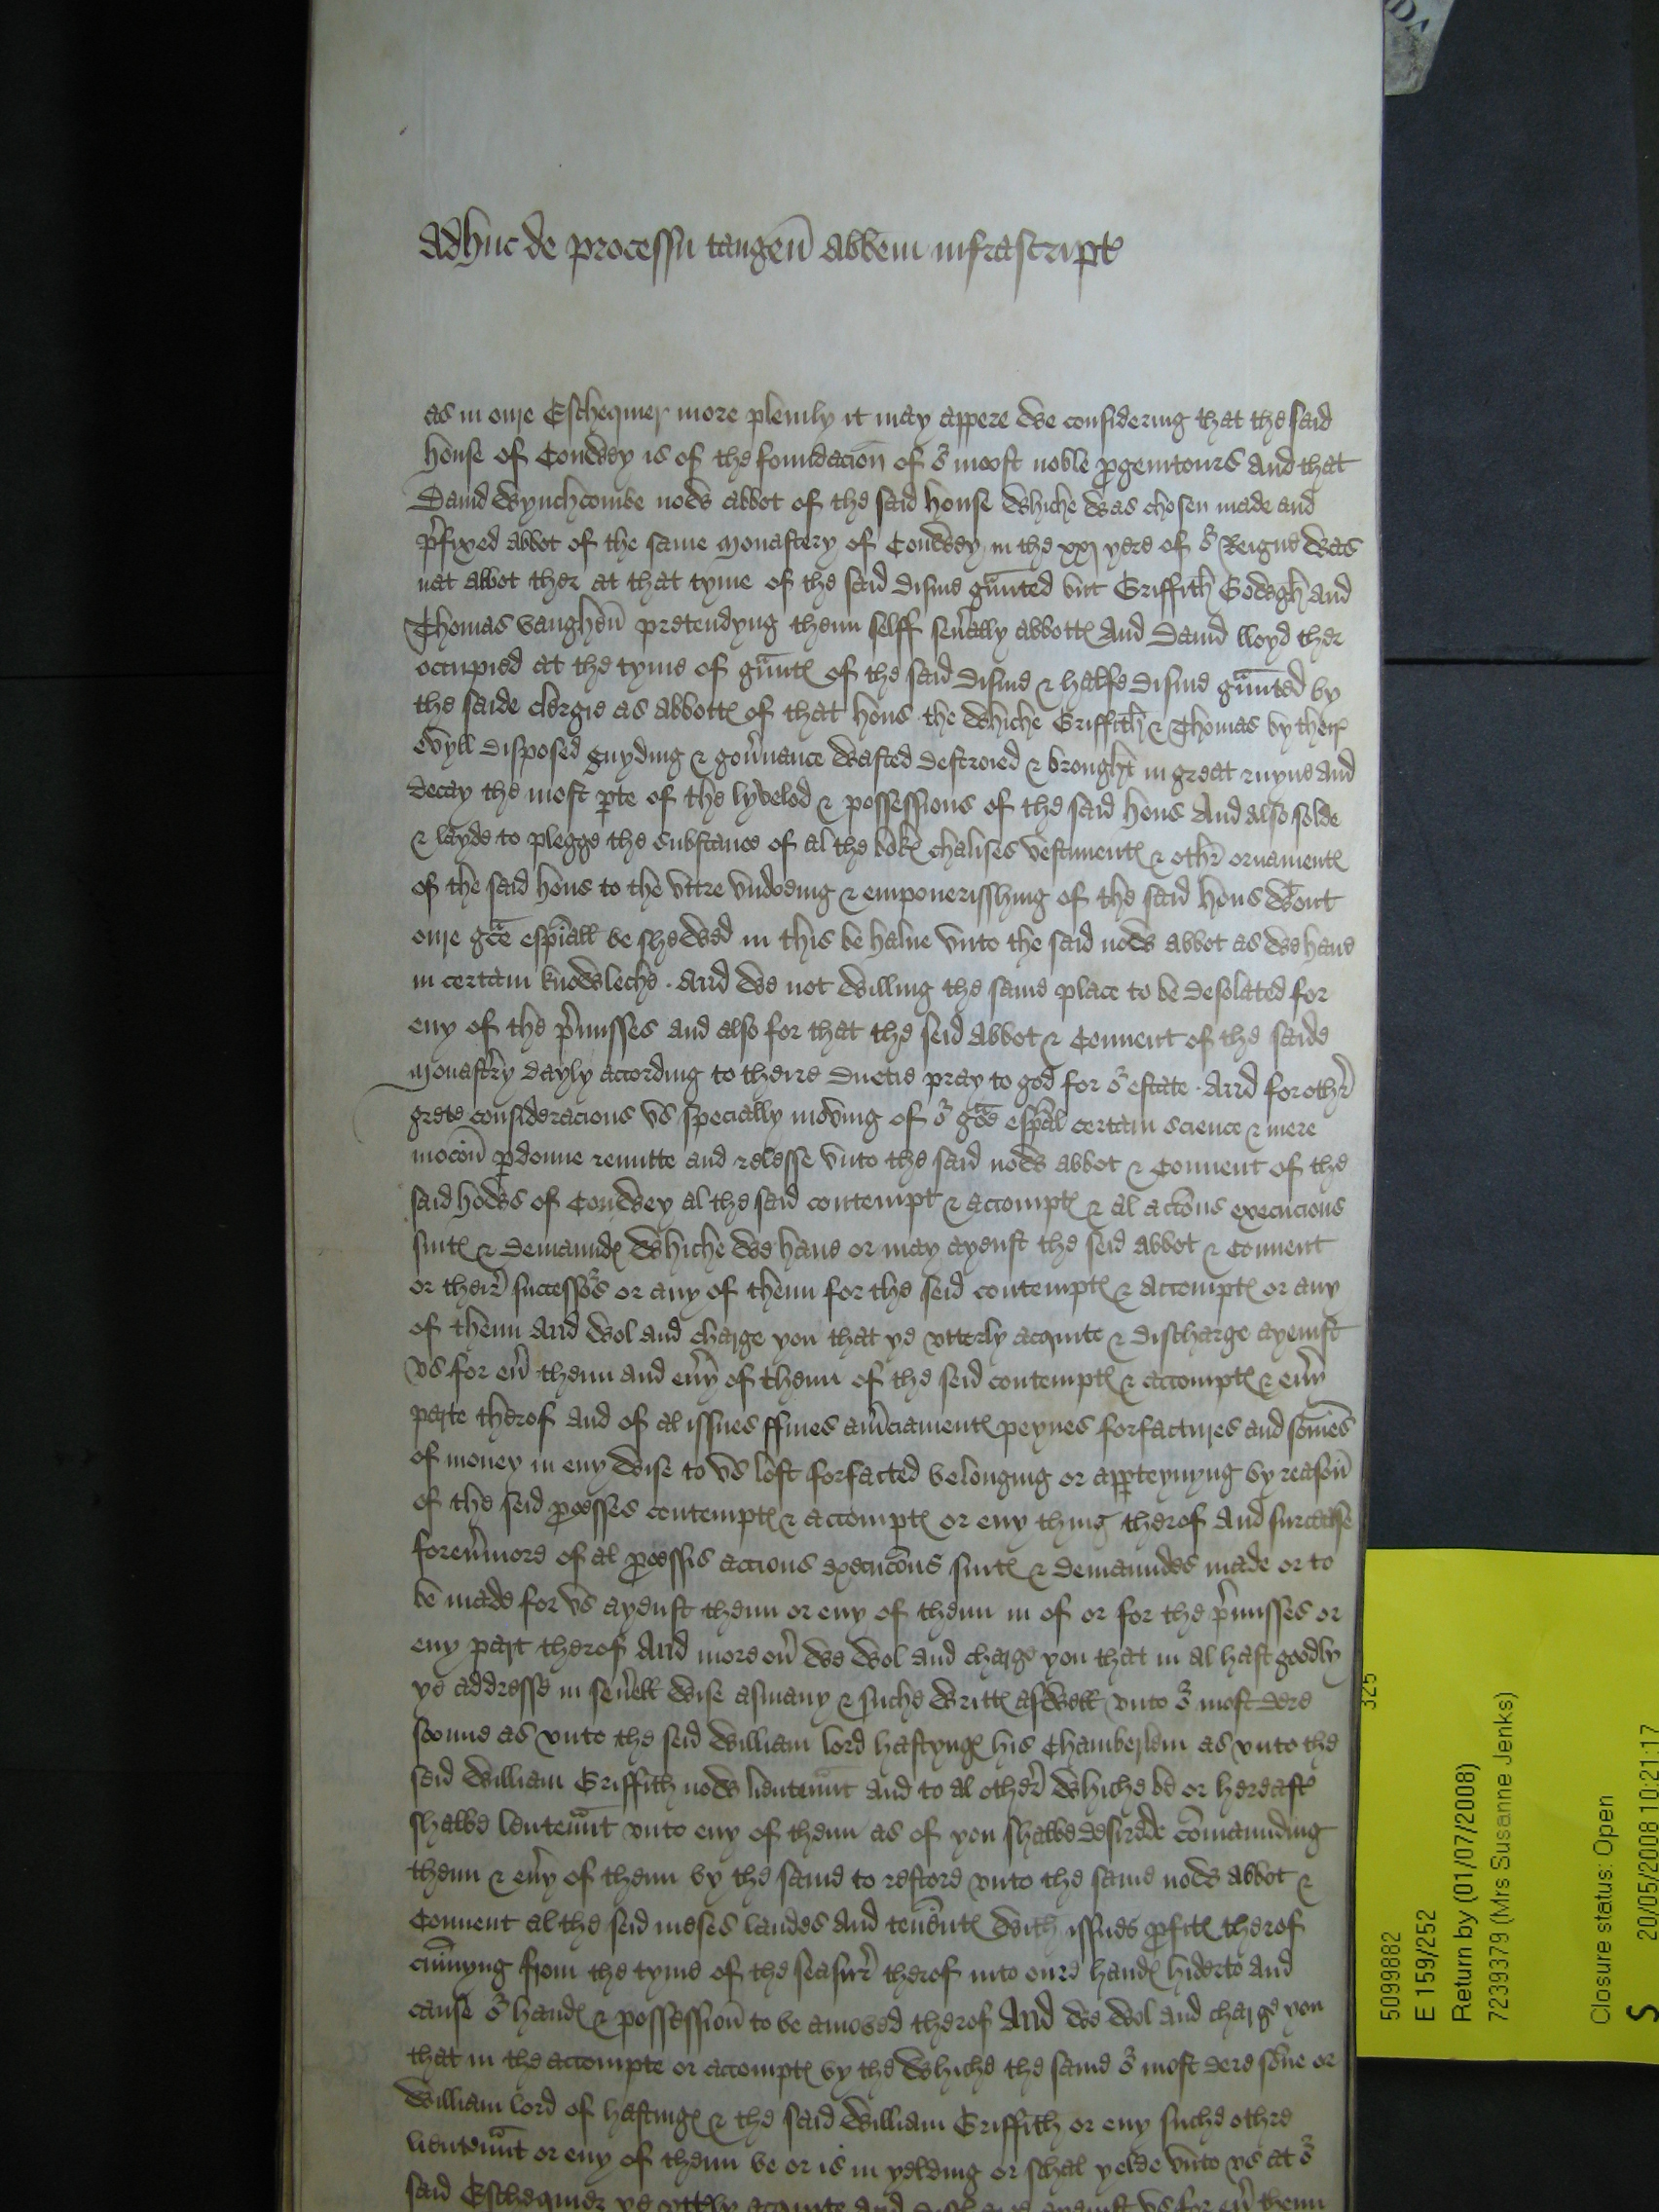 Adhuc de processu tangen̄ abbem infrascript
as in oure Eschequier more pleinly it may appere We considering that the said
house of Conwey is of the fondacion̄ of oʳ moost noble p̱genitours And that
David Wynchcombe nowe abbot of the said house Whiche was chosen made and
p̄fixed abbot of the same Monastery of Conwey in the xxj yere of oʳ Reigne was
nat abbot ther at that tyme of the said disme gᵃunted but Griffith Gowgh and
Thomas Vaughan̄ pretendyng themself sev̄ally abbottes And David lloyd ther
occupied at the tyme of gᵃuntes of the said disme & halfe disme gᵃunted by
the saide clergie as abbottes of that hous the whiche Griffith & Thomas by their
evyll disposed guyding & gov̄nance wasted destroied & brought in great ruyne and
decay the most p̱te of the lyvelod & possessions of the said hous And also solde
& layde to plegge the substance of al the bokes chalises vestmentes & othr̄ ornamentes
of the said hous to the uttre undoeing & empouerisshing of the said hous Wᵗout
oure gᵃce esp̄iall be shewed in this behalve unto the said nowe abbot as we have
in certain knowleche . And we not willing the same place to be desolated for
eny of the p̄misses and also for that the seid abbot & Convent of the saide
Monastr̄y dayly according to theire duetie pray to god for oʳ estate . And for othr̄
grete consideracions us specially moving of oʳ gᵃce esp̄al certain science & mere
moc̄on̄ p̱donne remitte and relesse unto the said nowe abbot & Convent of the
said hows of Conwey al the said contempt & accomptes & al acc̄ons execucions
suites & demaundes whiche we have or may ayenst the seid abbot & Convent
or their successoʳs or any of them for the seid contemptes & accomptes or any
of them And wol and charge you that ye utterly acquite & discharge ayenst
us for ev̄ them and ev̄y of them of the seid contemptes & accomptes & ev̄y
parte therof and of al issues ffines am̄ciamentes peynes forfactures and som̄es
of money in eny wise to us lost forfacted belonging or app̱teynyng by reason̄
of the seid p̱cesses contemptes & accomptes or eny thing therof And surcease
forev̄more of al p̱cessis accions execuc̄ons suites & demaundes made or to
be made for us ayenst them or eny of them in of or for the p̄misses or
eny part therof And more ov̄ we wol and charge you that in al hast goodly
ye addresse in sev̄ell wise asmany & suche writtes aswell unto oʳ most dere
sonne as unto the seid William lord hastynges his Chamberlein as unto the
seid William Griffith nowe lieutenᵃnt and to al other̄ whiche be or hereaftᵉ
shalbe leutenᵃnt unto eny of them as of you shalbe desirede com̄aunding
them & ev̄y of them by the same to restore unto the same nowe abbot &
Convent al the seid meses landes and ten̄entes with issues p̱fites therof
cum̄yng from the tyme of the seasur̄ therof into oure handes hiderto and
cause oʳ handes & possession̄ to be amoved therof And we wol and charge you
that in the accompte or accomptes by the whiche the same oʳ most dere son̄e or
William lord of hastinges & the said William Griffith or eny suche othre
lieutenᵃnt or eny of them be or is in yelding or schal yelde unto us at oʳ
said Eschequier ye utt̄ly acquite And discharge ayenst us for ev̄ them
5099882
E 159/252
Return by (01/07/2008)
7239379 (Mrs Susanne Jenks)
Closure status: Open
20/05/2008 10:21:17
S
325